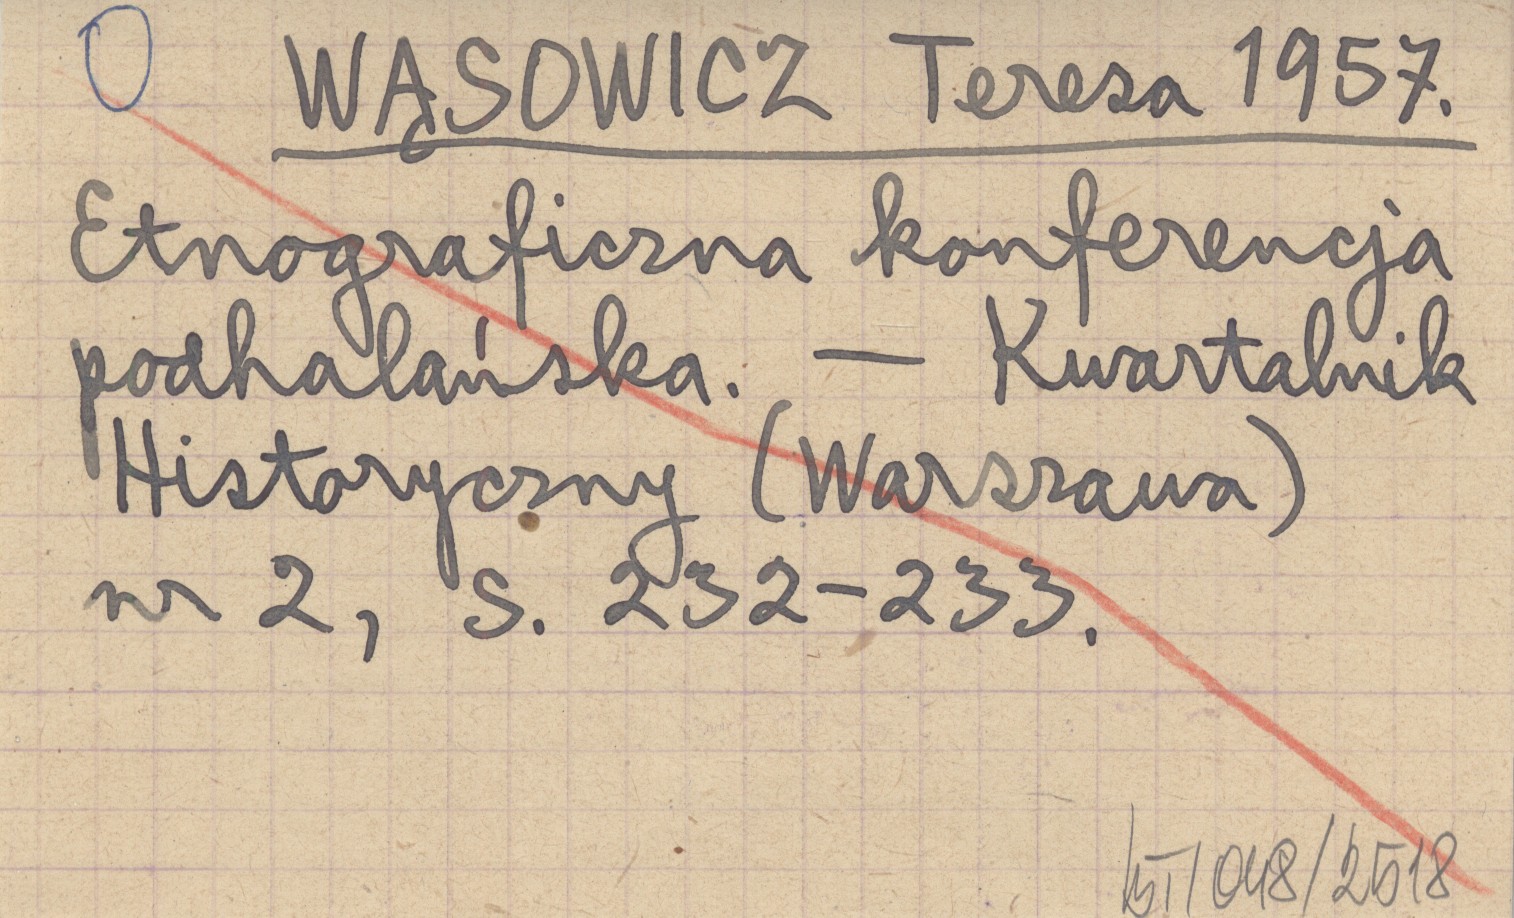 WĄSOWICZ Teresa 1957.
Etnograficzna konferencja
podhalańska. — Kwartalnik
Historyczny (Warszawa)
nr 2, s. 232-233.
/048/2518